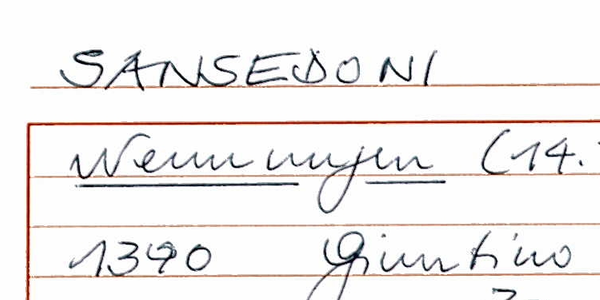 SANSEDONI
Nennungen (14.
1390 Giuntino